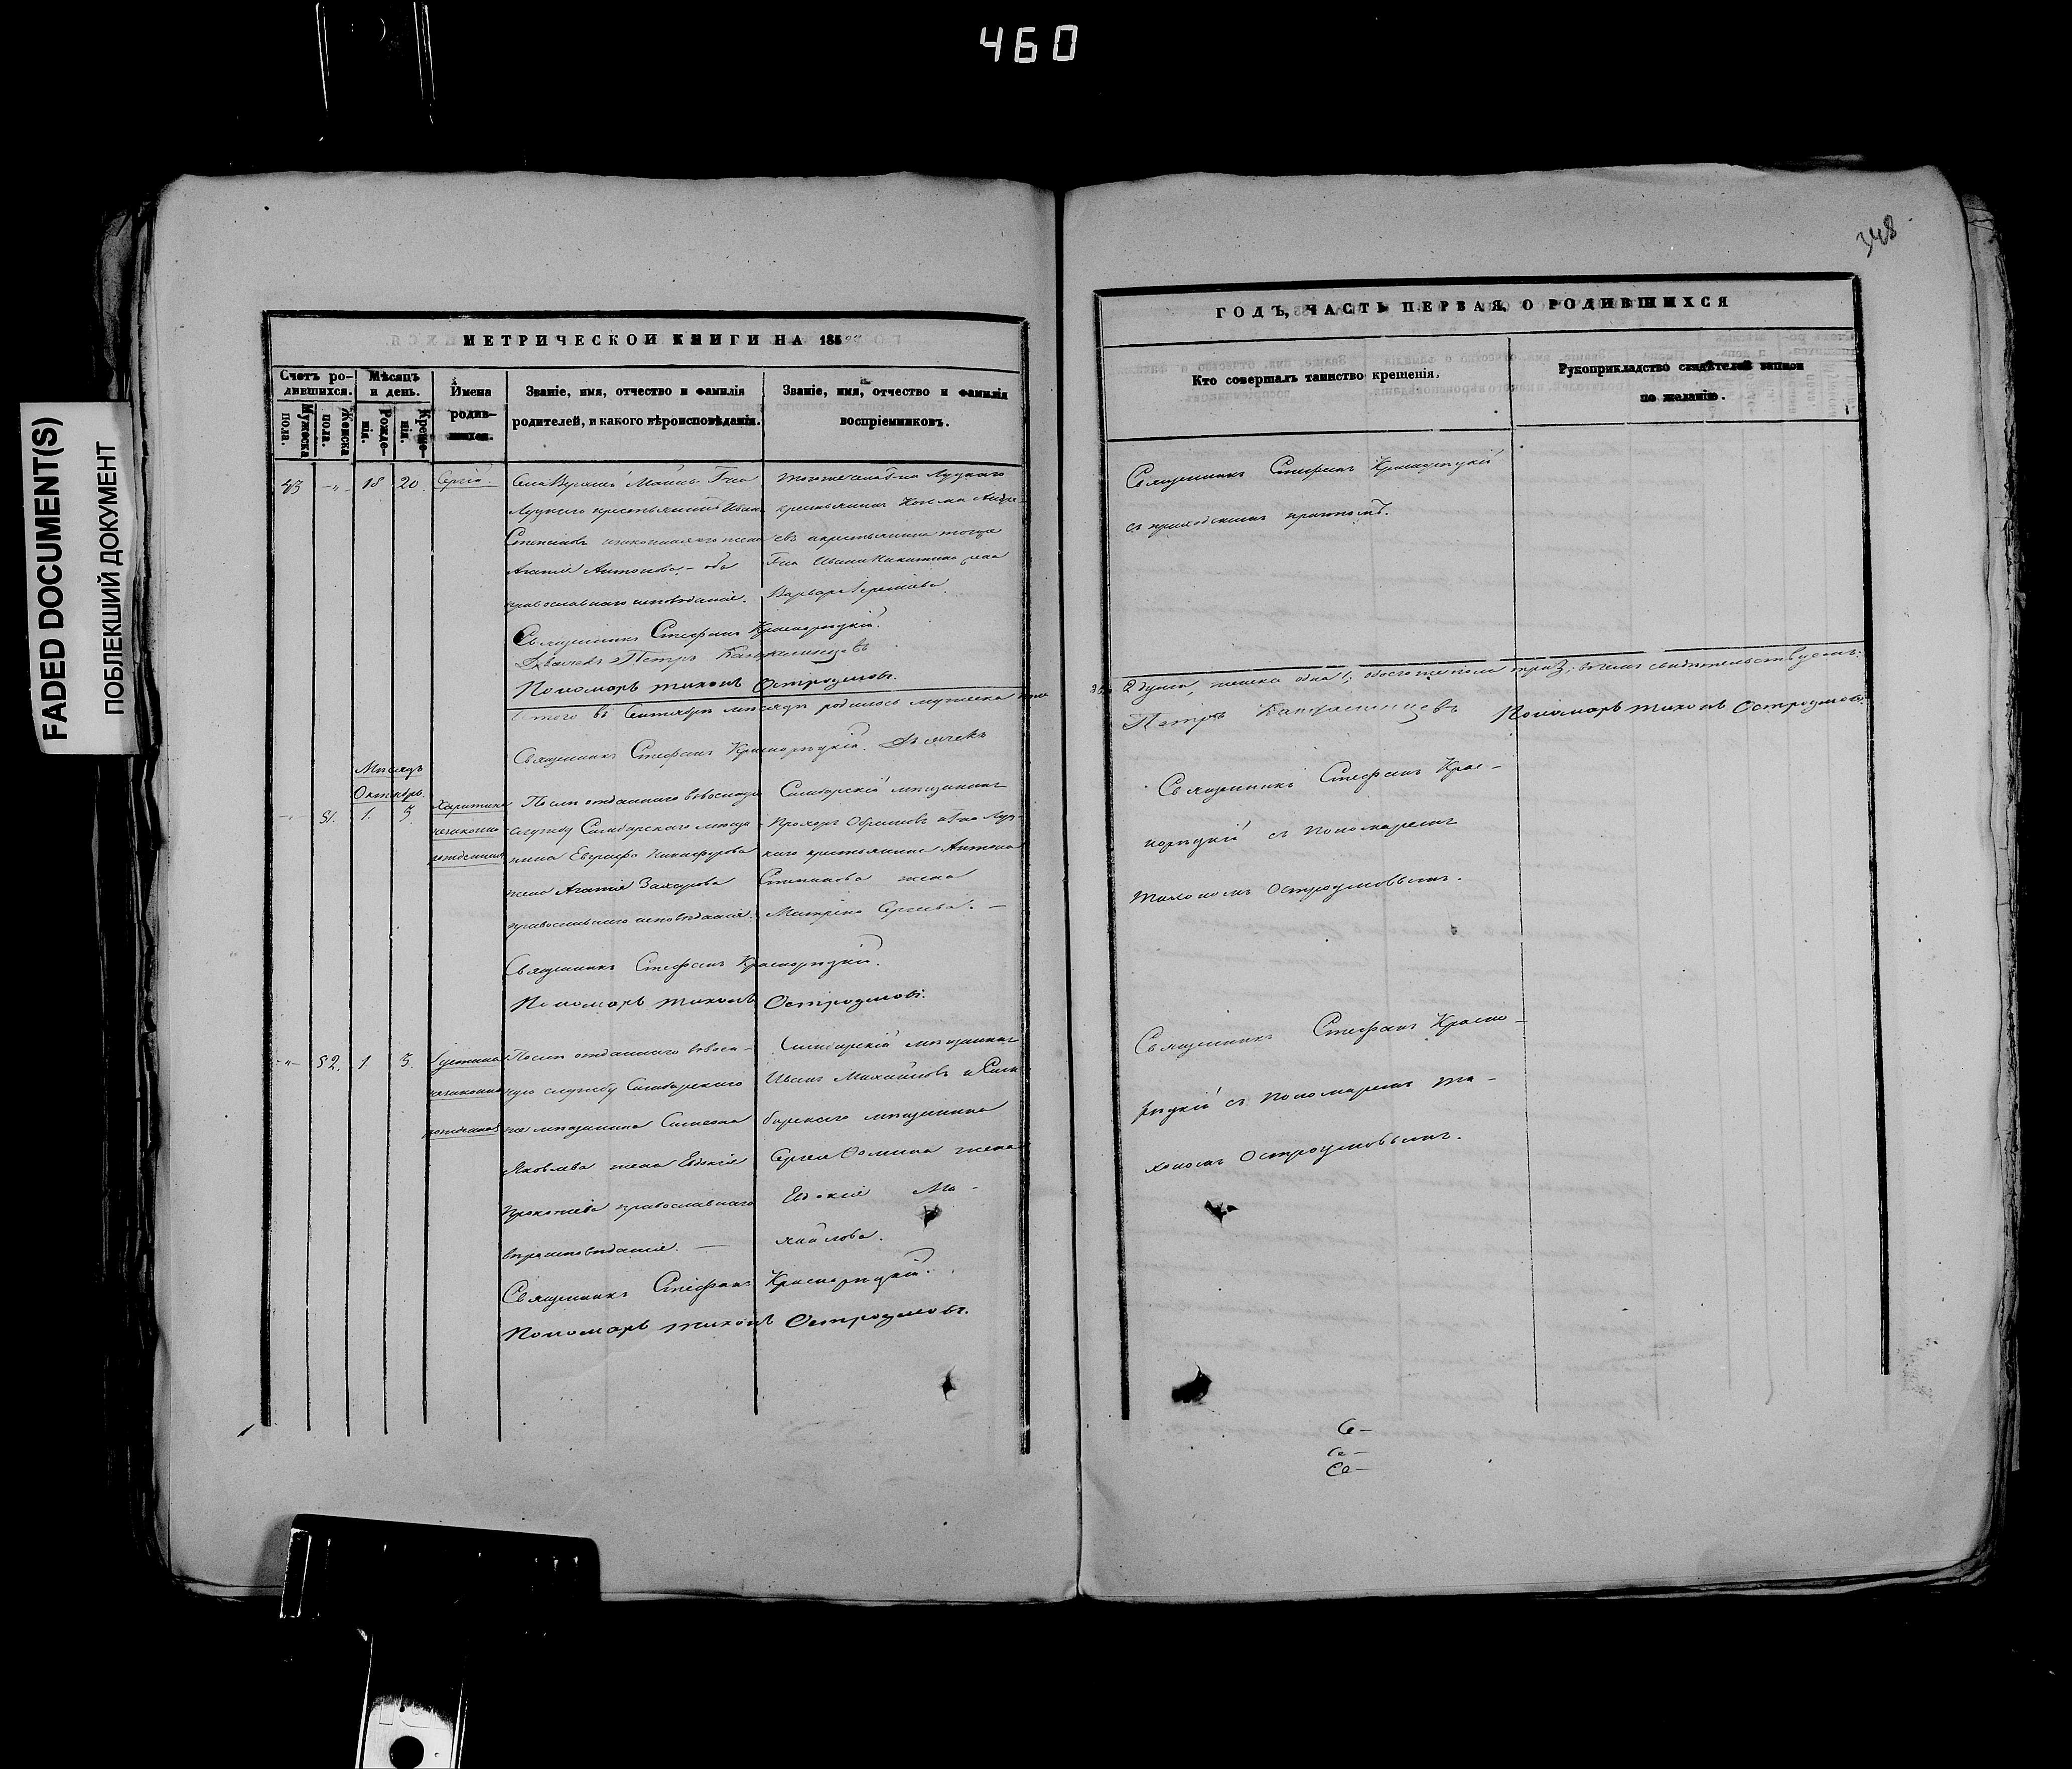 460
FADED DOCUMENT(S)
ПОБЛЕКШИЙ ДОКУМЕНТ
348
МЕТРИЧЕСКОЙ КНИГИ НА 185
Счетъ ро-
дившихся.
Мужеска
пола.
Женска
пола.
Мѣсяцъ
и день.
Рожде-
нія.
Креще-
нія.
Имена
родив-
шихся.
Званіе, имя, отчество и фамилія
родителей, и какого вѣроисповѣданія.
Званіе, имя, отчество и фамилія
воспріемниковъ.
43 -"- 18 20. Сергій.
крестьянинъ Иванъ
Степановъ и законная его жена
Агапія Антонова, - оба
православнаго исповѣданія.
крестьянинъ Козьма Андре-
евъ и крестьянина тогоже
Г-на Ивана Никитина жена
Варвара
Священникъ Стефанъ Краснорѣцкій.
Дьячекъ Петръ
Пономарь Тихонъ Остроумовъ.
Итого въ Сентябрѣ мѣсяцѣ родилось мужеска пола
Священникъ Стефанъ Краснорѣцкій. Дьячекъ
Мѣсяцъ
Октябрь.
-"- 51. 1. 3.
Харитина
незаконно
рожденная
Послѣ отданнаго въ военную
службу Симбирскаго мѣща-
нина Евграфа Никифорова
жена Агапія Захарова
православнаго исповѣданія.
Симбирскій мѣщанинъ
Прохоръ и Г-на Луц-
каго крестьянина Антона
Степанова жена
Матрена Сергѣева. -
Священникъ Стефанъ Краснорѣцкій.
Пономарь Тихонъ Остроумовъ.
-"- 52. 1. 3.
Устинья
незаконно
рожденная
Послѣ отданнаго въ воен-
ную службу Симбирскаго
же мѣщанина Симеона
Яковлева жена Евдокія
Прокопіева православнаго
вѣроисповѣданія. -
Симбирскій мѣщанинъ
Иванъ Михайловъ и Сим-
бирскаго мѣщанина
Сергея Фомина жена
Евдокія Ми-
хайлова.
Священникъ Стефанъ Краснорѣцкій.
Пономарь Тихонъ Остроумовъ.
ГОДЪ, ЧАСТЬ ПЕРВАЯ, О РОДИВШИХСЯ
Кто совершалъ таинство крещенія.
Рукоприкладство свидѣтелей записи
по желанію.
Священникъ Стефанъ Краснорѣцкій
съ приходскимъ причтомъ.
2 души, женска одна 1; обоего же пола три 3. въ чемъ свидѣтельствуемъ:
Петръ Пономарь Тихонъ Остроумовъ.
Священникъ Стефанъ Крас-
норѣцкій съ Пономаремъ
Тихономъ Остроумовымъ.
Священникъ Стефанъ Красно-
рѣцкій съ Пономаремъ Ти-
хономъ Остроумовымъ.
Се-
Се-
Се-